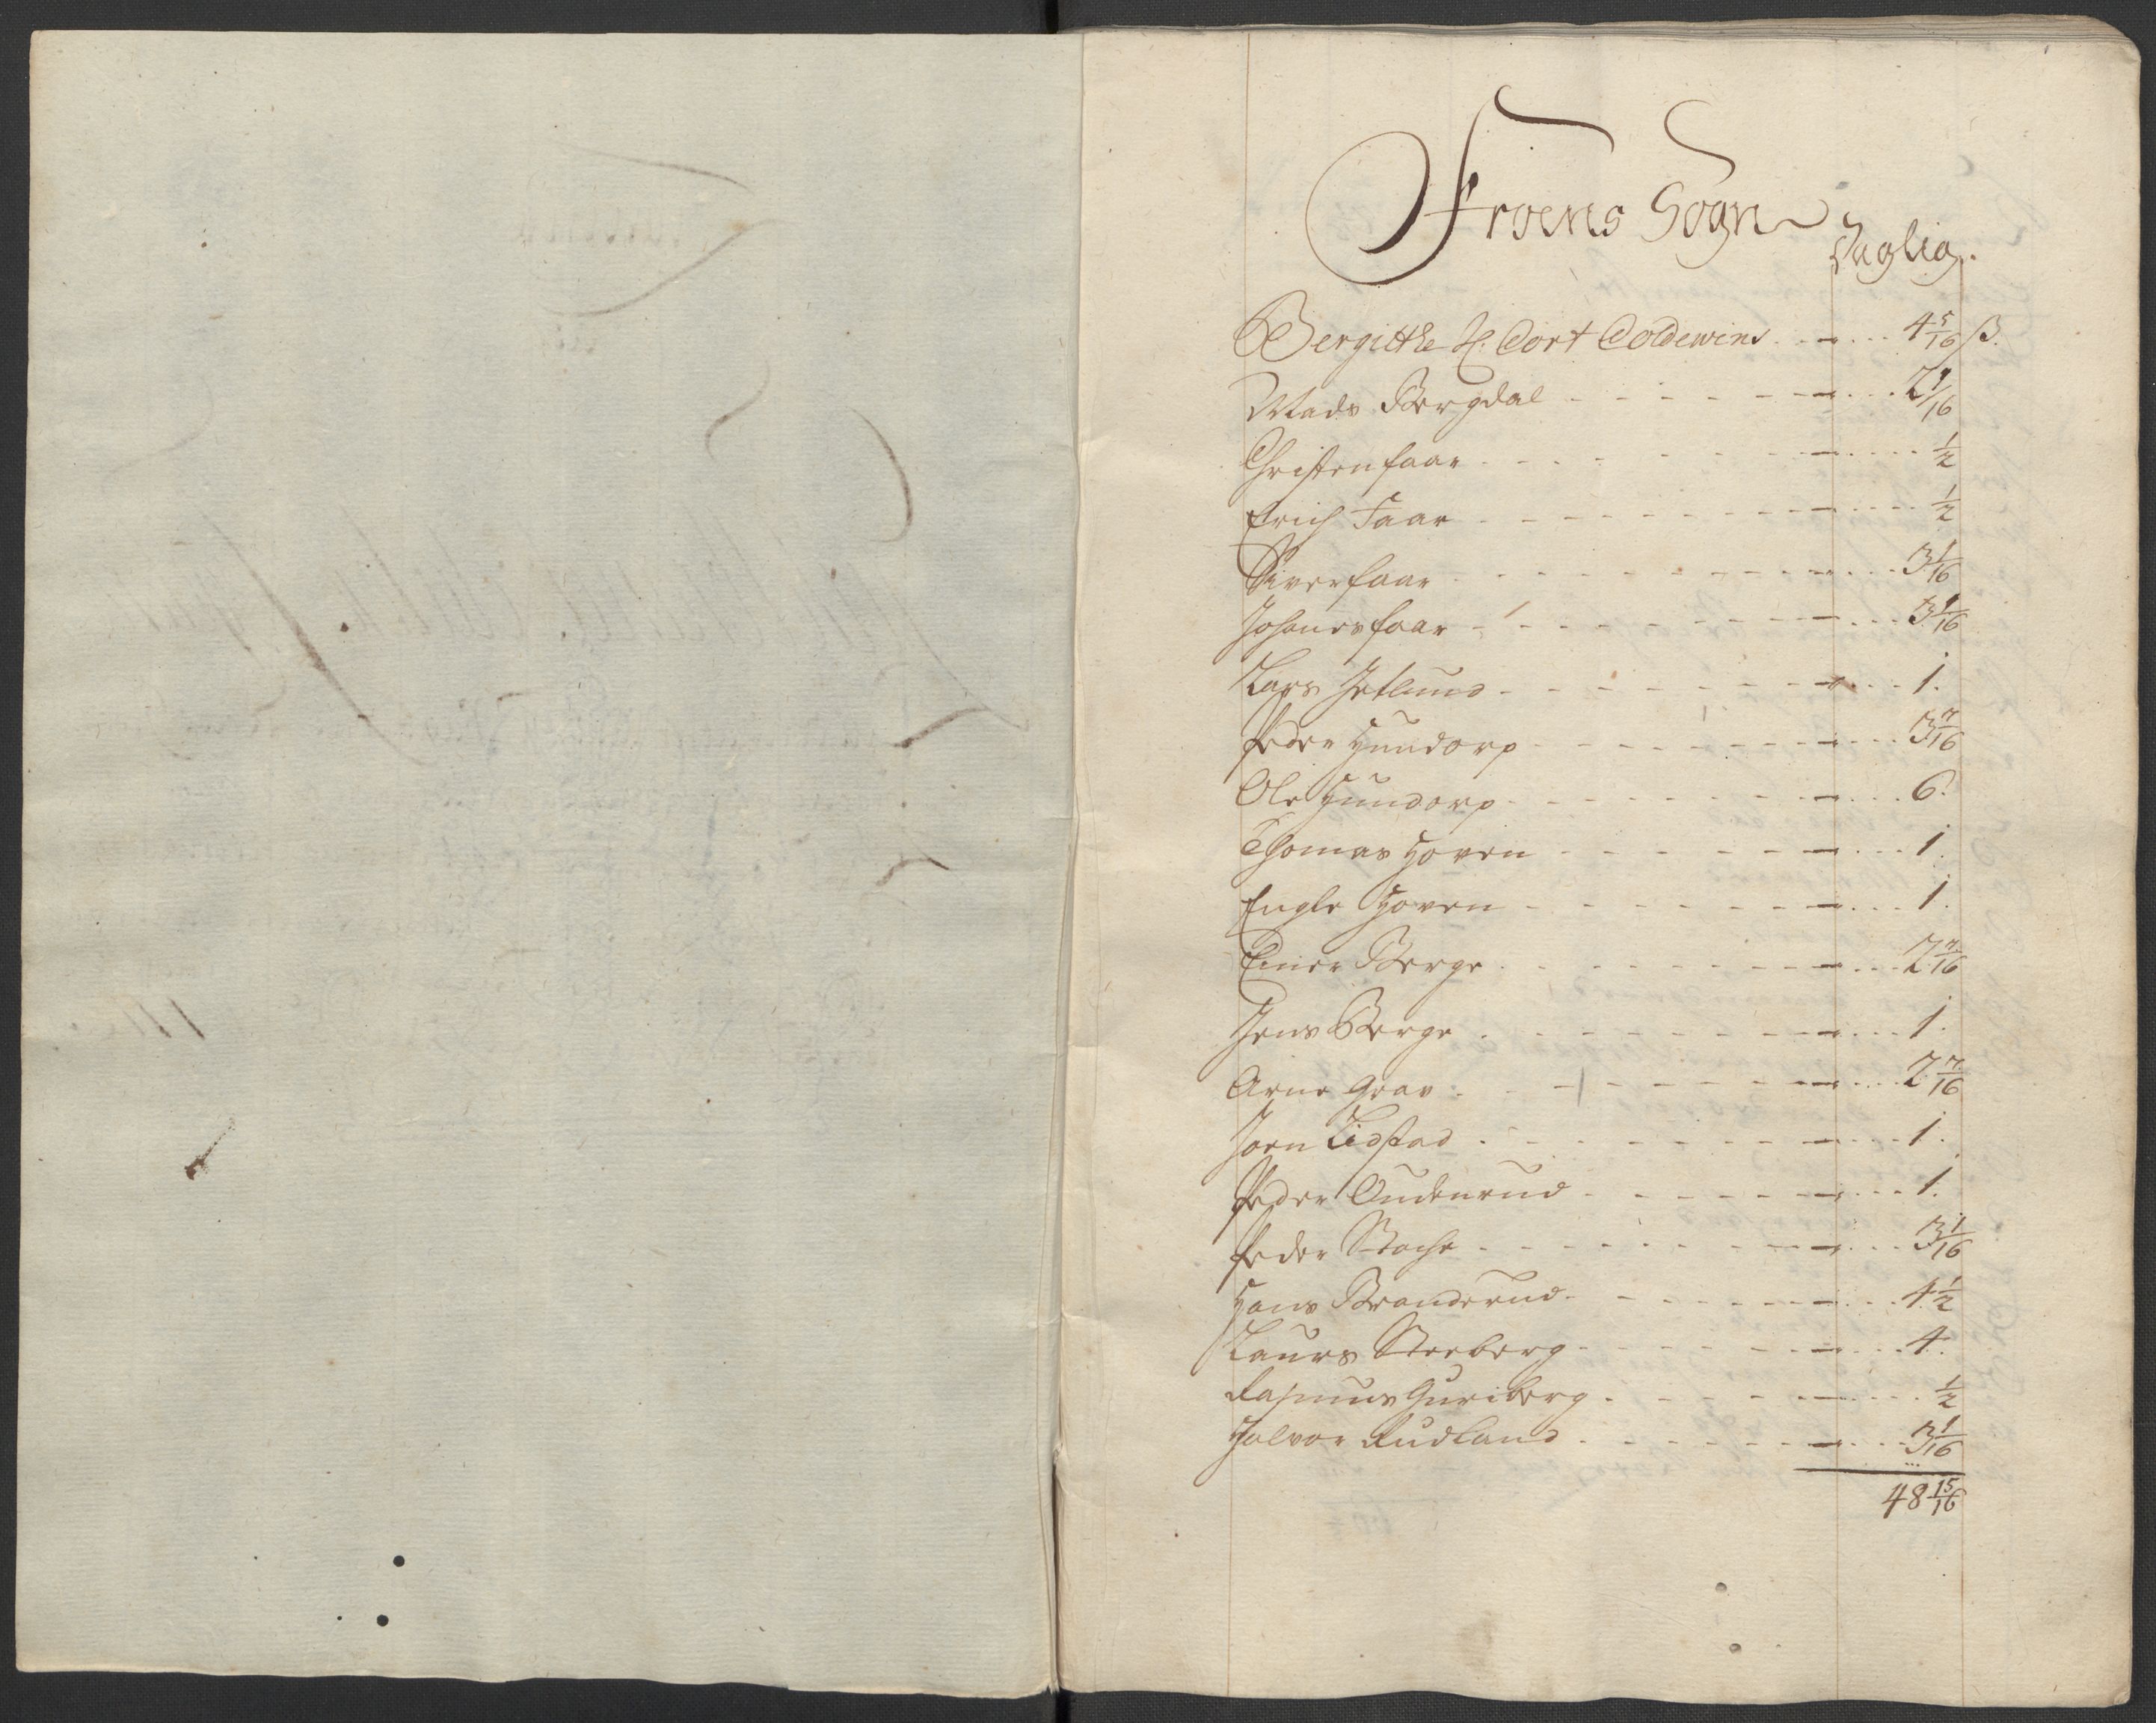 Froens Sogn
Daglig.
Bergitthe H. Cort Coldewins . . . 4 5/16 ß.
Mads Bergdal 2 1/16
Christen faar 1/2
Erich Faar 1/2
Siver faar 3 1/16
Johanes faar 3 1/16
Lars Jetlund 1.
Peder Hundorp 3 7/16
Ole Hundorp 6.
Thomas Hoven 1.
Engle Hoven 1.
Einer Berge 2 7/16
Jens Berge 1.
Arne Grav 2 7/16
Joen Lidstad 1.
Peder Oudenrud 1.
Peder Stache 3 1/16
Hans Branderud 4 1/2
Laurs Steeberg 4.
Rasmus Guriberg 1/2
Halvor Rudland 3 1/16
48 15/16